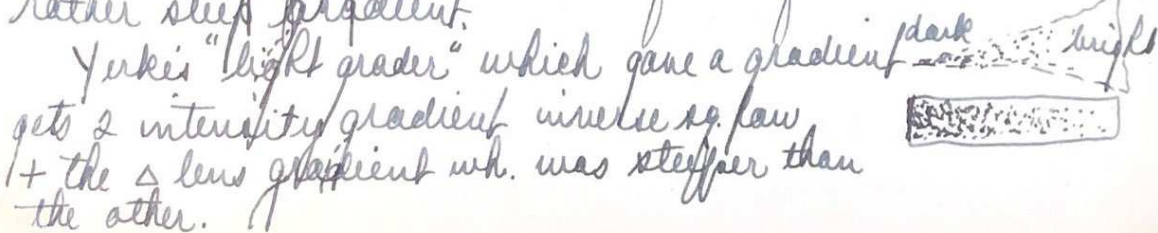 rather steep gradient.
Yerkes "light grader" which gave a gradient dark bright
gets 2 intensity gradient inverse sq. law
+ the △ lens gradient wh. was steeper than
the other.